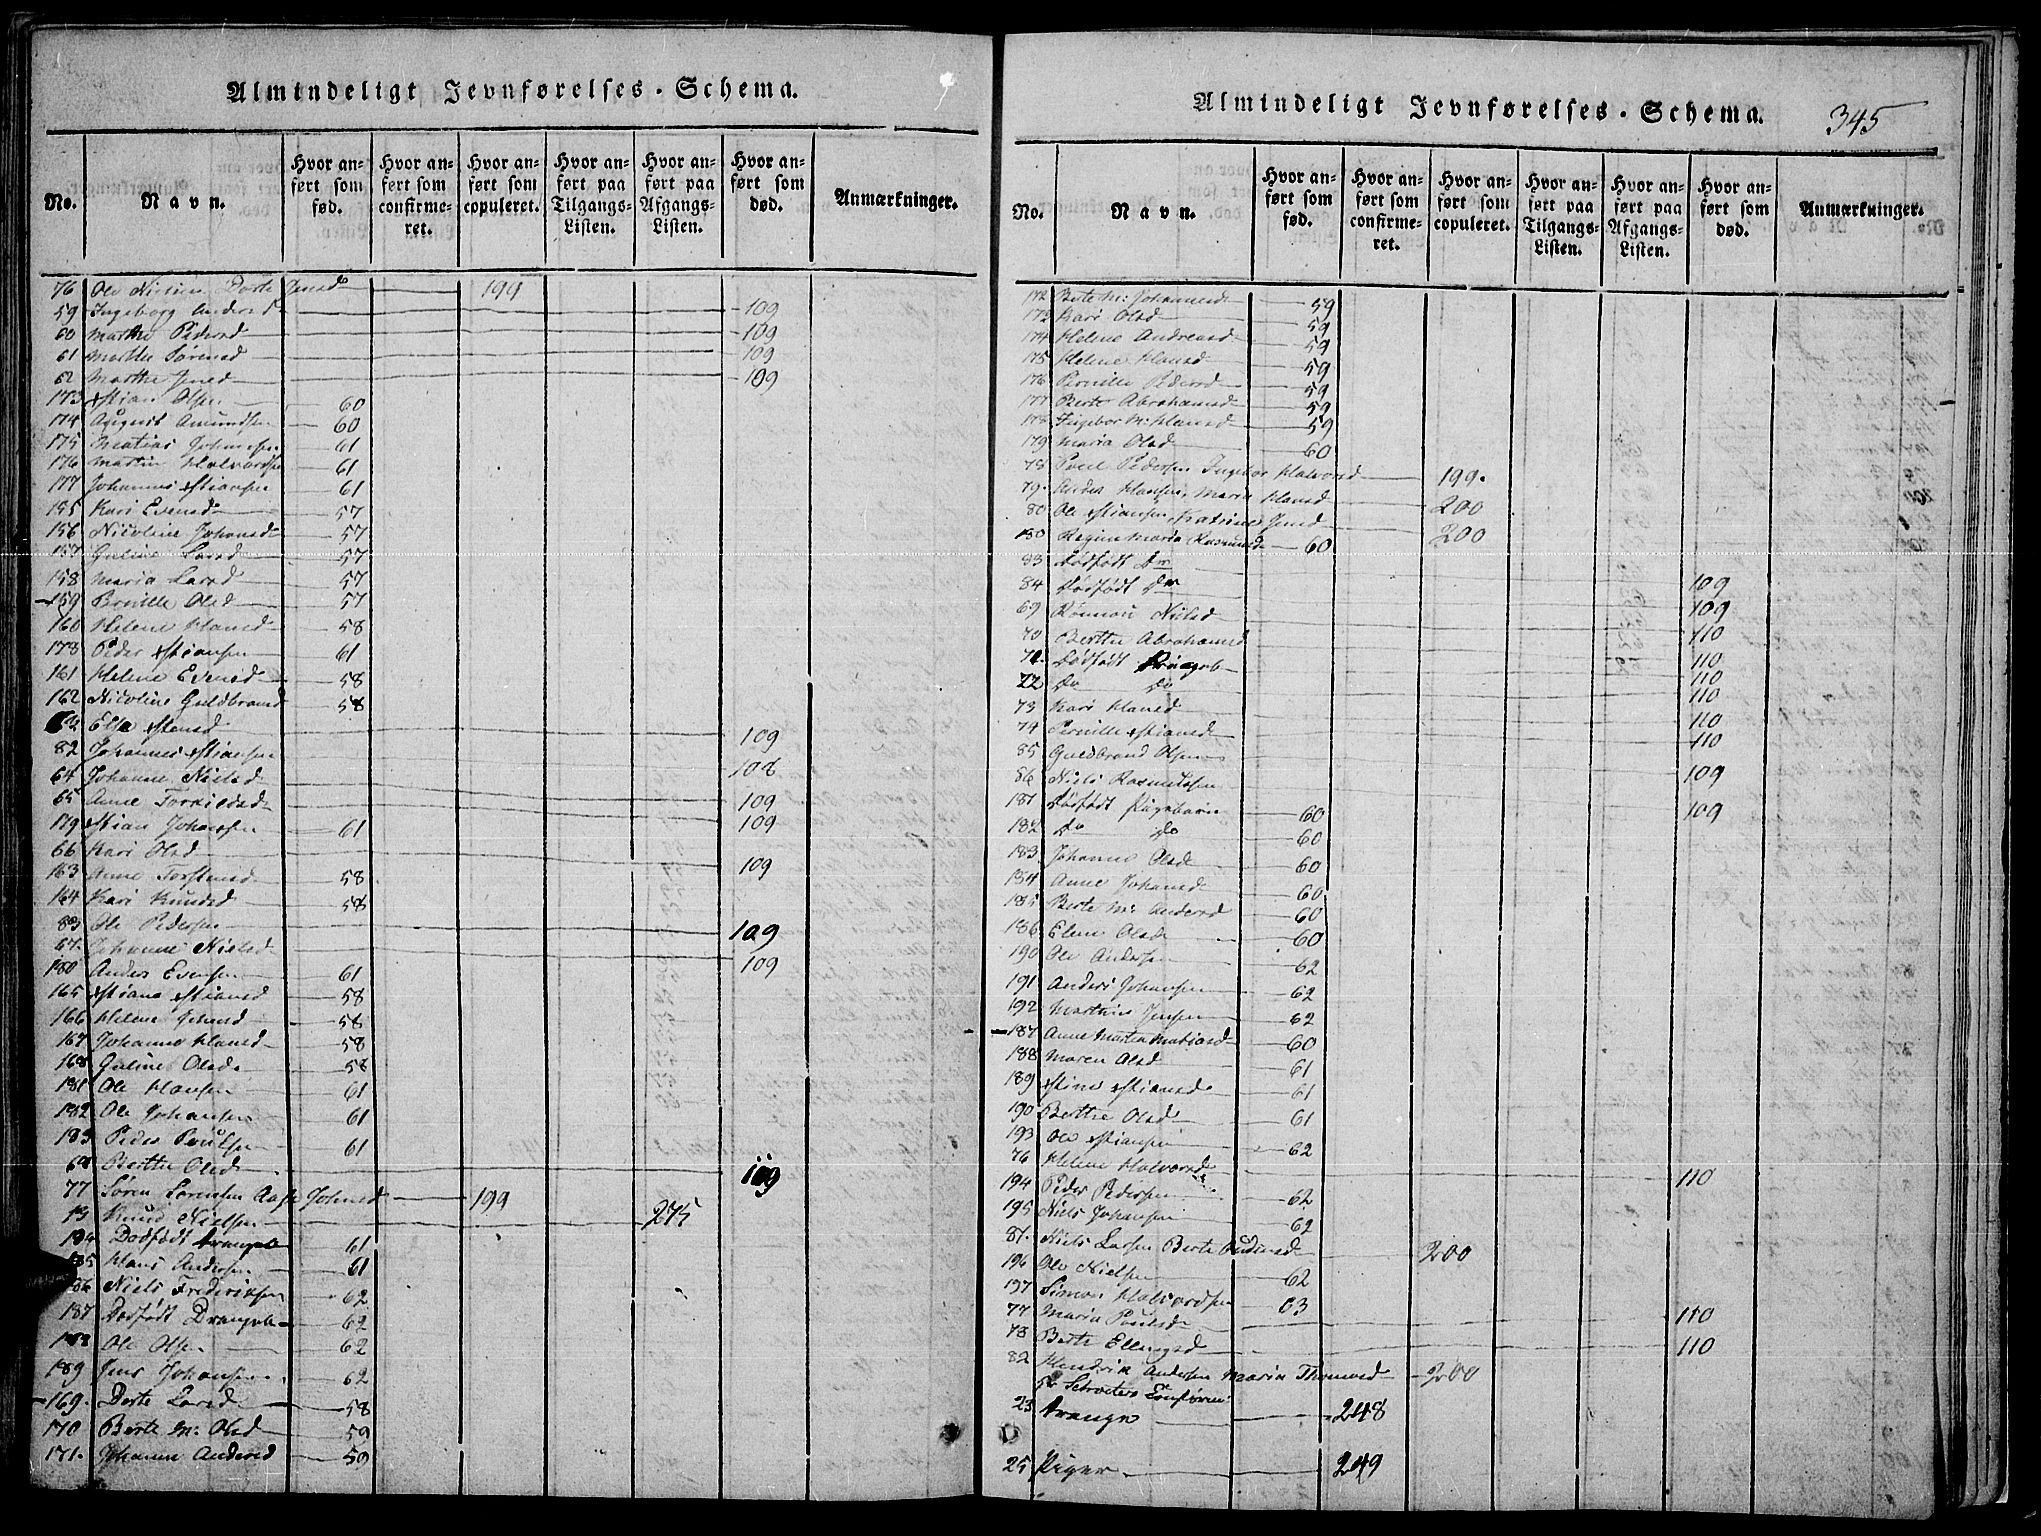 Almindeligt Jevnførelses-Schema.
No.
Navn.
Hvor anført som fød.
Hvor anført som confirmeret.
Hvor anført som copuleret.
Hvor anført paa Tilgangs-Listen.
Hvor anført paa Afgangs-Listen.
Hvor anført som død.
Anmærkninger.
76 Ole Nielsen Dorte Jensd 199
59 Ingeborg Andersd 109
60 Marthe Pedersd 109
61 Marthe Sørensd 109
62 Marthe Jensd 109
173 Xstian Olsen 60
174 August Amundsen 60
175 Matias Johannesen 61
176 Martin Halvordsen 61
177 Johannes Xstiansen 61
155 Kari Evensd 57
156 Nicoline Johansd 57
157 Guline Larsd 57
158 Maria Larsd 57
159 Pernille Olsd 57
160 Helene Hansd 58
178 Peder Xstiansen 61
161 Helene Evensd 58
162 Nicoline Guldbrandsd 58
Else Stensd 109
82 Johannes Xstiansen 108
64 Johanne Nielsd 109
65 Anne Torkildsd 109
179 Xstian Johansen 61
66 Kari Olsd 109
163 Anne Torstensd 58
164 Kari Knudsd 58
83 Ole Pedersen 109
67 Johanne Nielsd 109
180 Anders Evensen 61
165 Xstiane Xstiansd 58
166 Helene Johansd 58
167 Johanne Hansd 58
168 Guline Olsd 58
181 Ole Hansen 61
182 Ole Johansen 61
183 Peder Poulsen 61
68 Berthe Olsd 109
77 Søren Sørensen Aase Johansd 199
13 Knud Nielsen 275
184 Dødfødt Drengeb 61
185 Hans Andersen 61
186 Niels Frederiksen 62
187 Dødfødt Drengeb 62
188 Ole Olsen 62
189 Jens Johansen 62
169. Dorte Larsd 58
170 Berte M: Olsd 59
171. Johanne Andersd 59
Almindeligt Jevnførelses-Schema.
345
No.
Navn.
Hvor anført som fød.
Hvor anført som confirmeret.
Hvor anført som copuleret.
Hvor anført paa Tilgangs-Listen.
Hvor anført paa Afgangs-Listen.
Hvor anført som død.
Anmærkninger.
172 Berte M: Johannesd 59
173 Kari Olsd 59
174 Helene Andreasd 59
175 Helene Hansd 59
176 Pernille Pedersd 59
177 Berte Abrahamsd 59
178 Ingebor M: Hansd 59
179 Maria Olsd 60
78 Poul Pedersen Ingebor Halvorsd 199.
79. Anders Hansen, Maria Hansd 200
80 Ole Xstiansen, Katrine Jensd 200
180 Regine Maria Rasmusd 60
83 Dødfødt Dr 109
84 Dødfødt Dr 109
69 Rønnou Nielsd 110
70 Berthe Abrahamsd 110
71. Dødfødt Pigeb 110
72 Do Do 110
73 Kari Hansd 110
74 Pernille Xstiansd 110
85 Guldbrand Olsen 109
86 Niels Rasmussen 109
181 Dødfødt Pigebarn 60
182 Do Do 60
183 Johanne Olsd 60
184 Anne Johansd 60
185 Berte M: Andersd 60
186 Elene Olsd 60
190 Ole Andersen 62
191 Anders Johansen 62
192 Martinus Jensen 62
187 Anne Martea Matiasd 60
188 Maren Olsd 61
189 Xstine Xstiansd 61
190 Berthe Olsd 61
193 Ole Xstiansen 62
76 Helene Halvorsd 110
194 Peder Pedersen 62
195 Niels Johansen 62
81. Niels Larsen Berte Audensd 200
196 Ole Nielsen 62
197 Simon Halvordsen 63
77 Maria Poulsd 110
78 Berte Ellingsd 110
82 Hendrik Andersen Maria Thomesd 200
23 Drenge 248
25 Piger 249